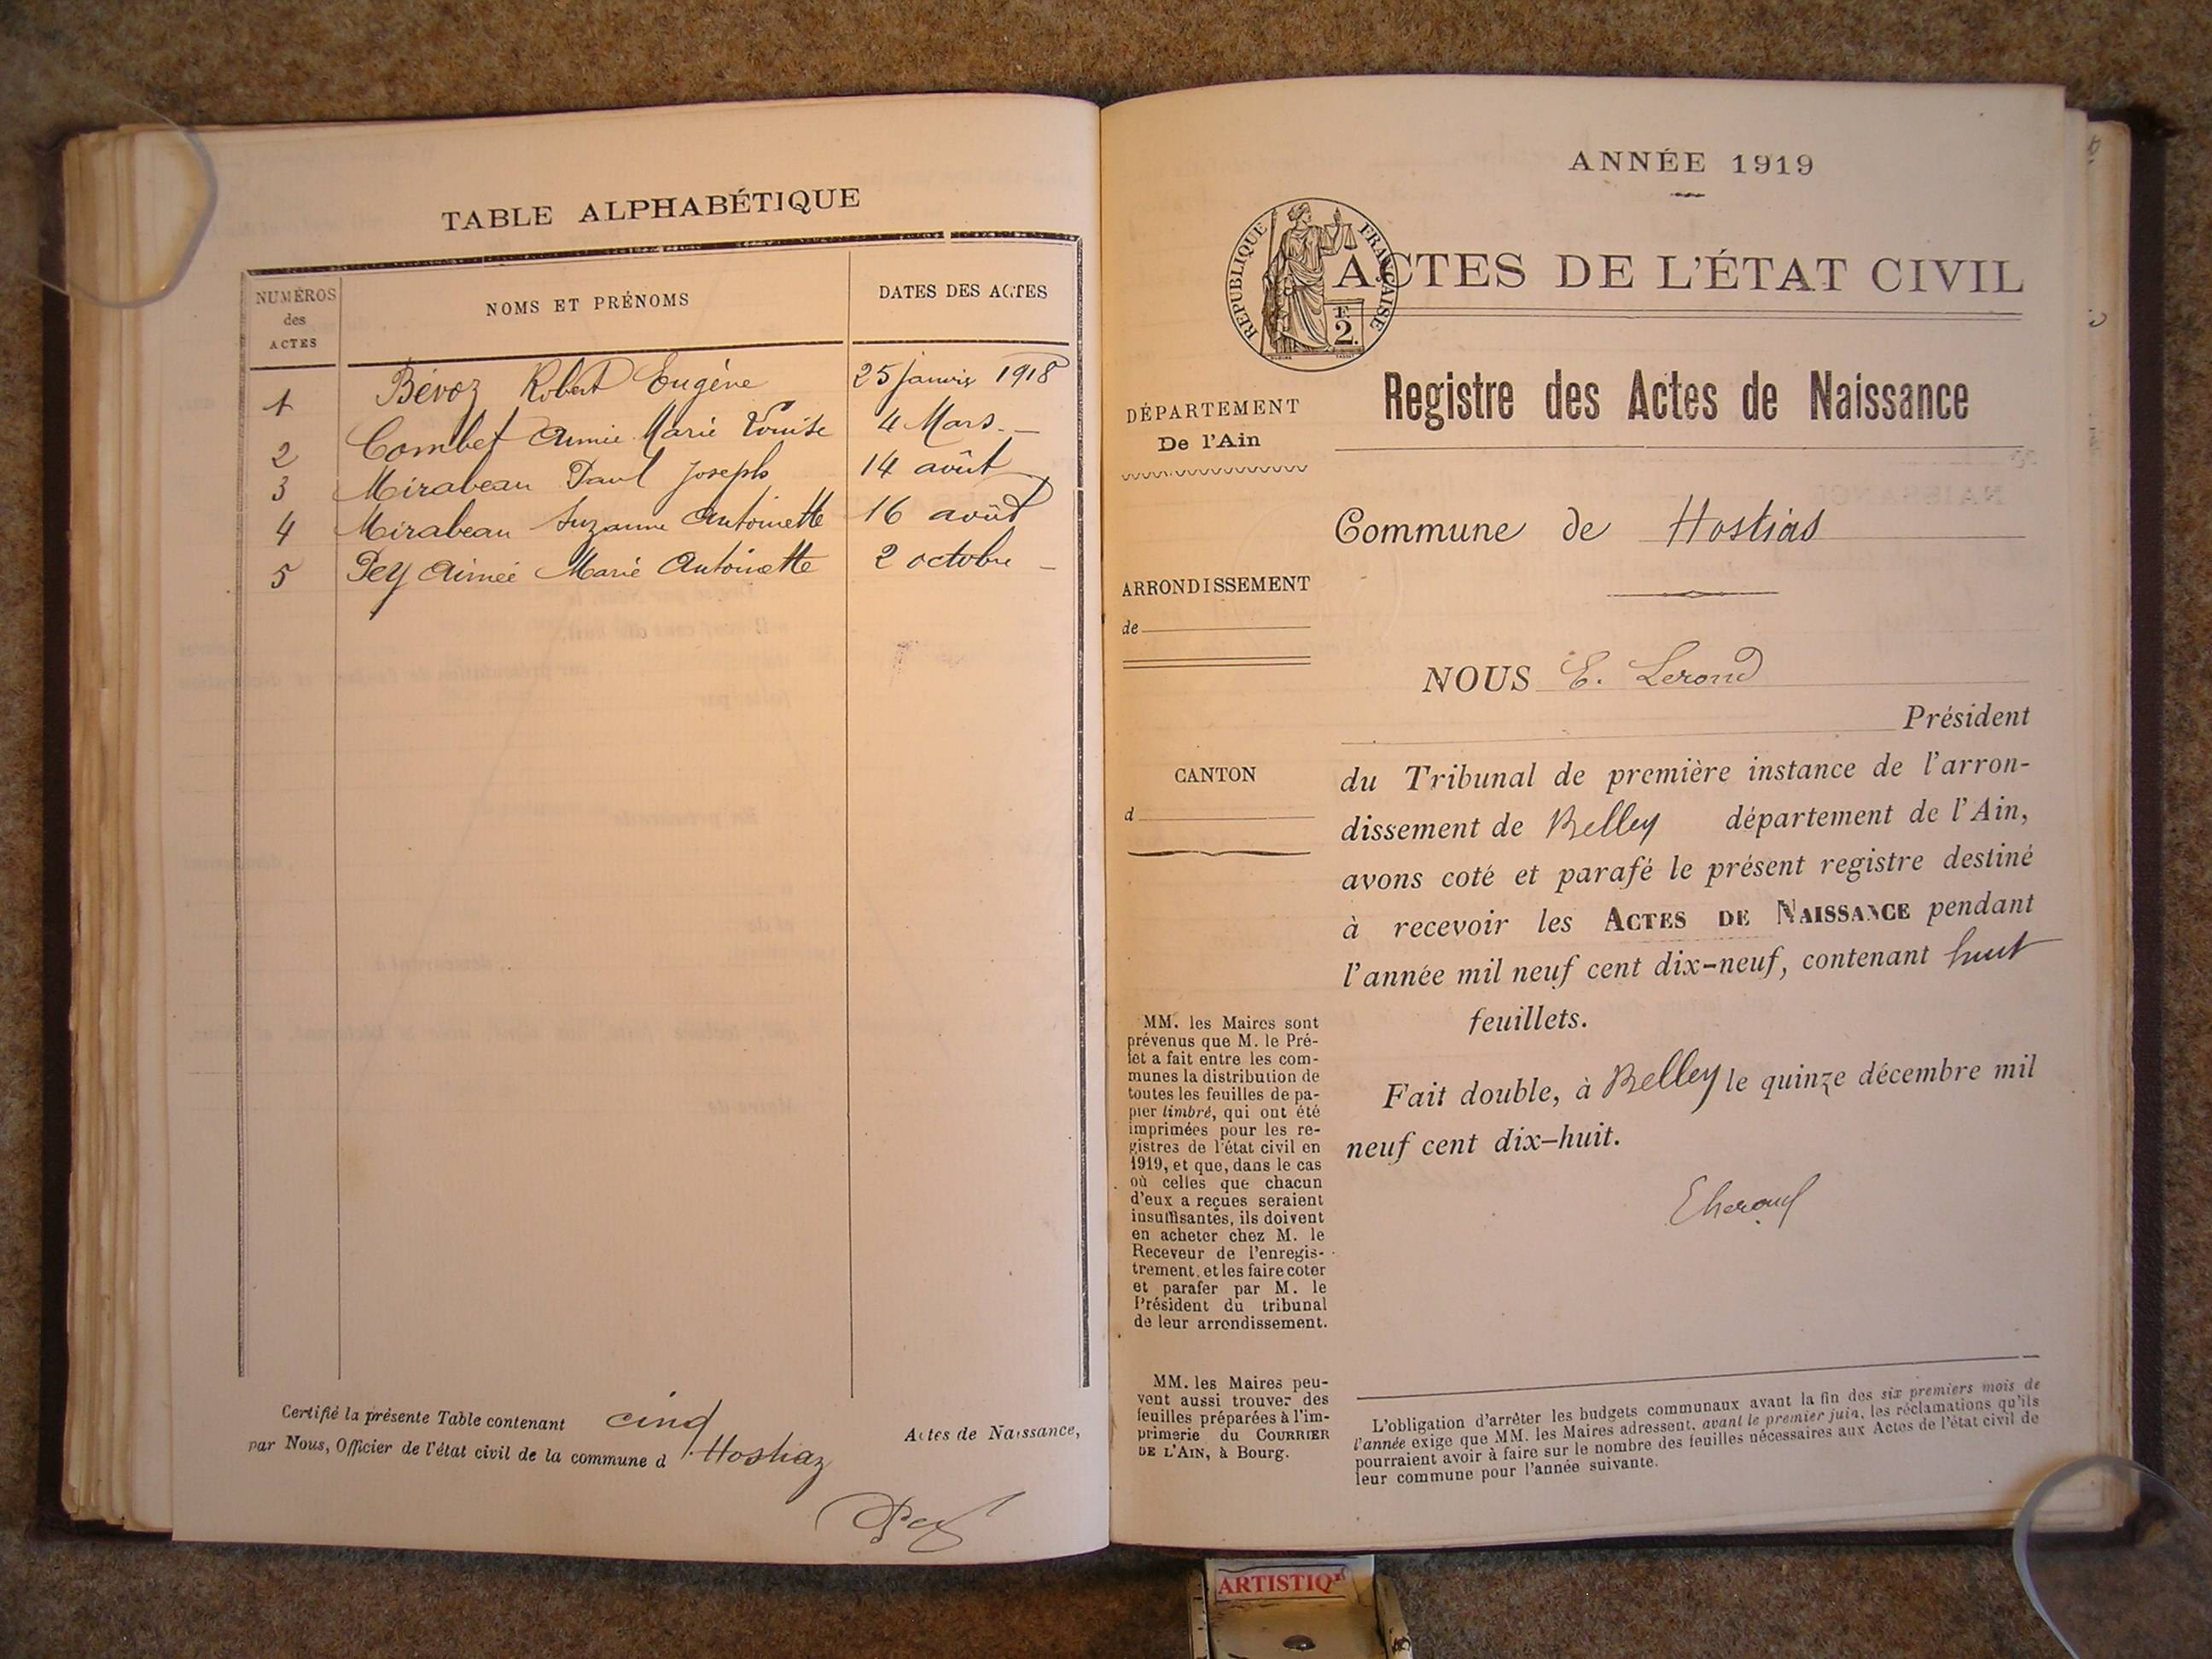 TABLE ALPHABÉTIQUE
NUMÉROS
des
ACTES
NOMS ET PRÉNOMS
DATES DES ACTES
1 Bévoz Robert Eugène 25 janvier 1918
2 Combet Aimée Marie Louise 4 Mars. –
3 Mirabeau Paul Joseph 14 août
4 Mirabeau Suzanne Antoinette 16 août
5 Pey Aimée Marie Antoinette 2 octobre –
Certifié la présente Table contenant cinq Actes de Naissance,
par Nous, Officier de l'état civil de la commune d Hostiaz
Pey
ANNÉE 1919
RÉPUBLIQUE FRANÇAISE
F.
2.
ACTES DE L'ÉTAT CIVIL
Registre des Actes de Naissance
DÉPARTEMENT
De l'Ain
Commune de Hostias
ARRONDISSEMENT
de
CANTON
d
NOUS E. Lerond
Président
du Tribunal de première instance de l'arron-
dissement de Belley département de l'Ain,
avons coté et parafé le présent registre destiné
à recevoir les ACTES DE NAISSANCE pendant
l'année mil neuf cent dix-neuf, contenant huit
feuillets.
Fait double, à Belley le quinze décembre mil
neuf cent dix-huit.
MM. les Maires sont
prévenus que M. le Pré-
fet a fait entre les com-
munes la distribution de
toutes les feuilles de pa-
pier timbré, qui ont été
imprimées pour les re-
gistres de l'état civil en
1919, et que, dans le cas
où celles que chacun
d'eux a reçues seraient
insuffisantes, ils doivent
en acheter chez M. le
Receveur de l'enregis-
trement, et les faire coter
et parafer par M. le
Président du tribunal
de leur arrondissement.
MM. les Maires peu-
vent aussi trouver des
feuilles préparées à l'im-
primerie du COURRIER
DE L'AIN, à Bourg.
L'obligation d'arrêter les budgets communaux avant la fin des six premiers mois de
l'année exige que MM. les Maires adressent, avant le premier juin, les réclamations qu'ils
pourraient avoir à faire sur le nombre des feuilles nécessaires aux Actes de l'état civil de
leur commune pour l'année suivante.
ARTISTIQ